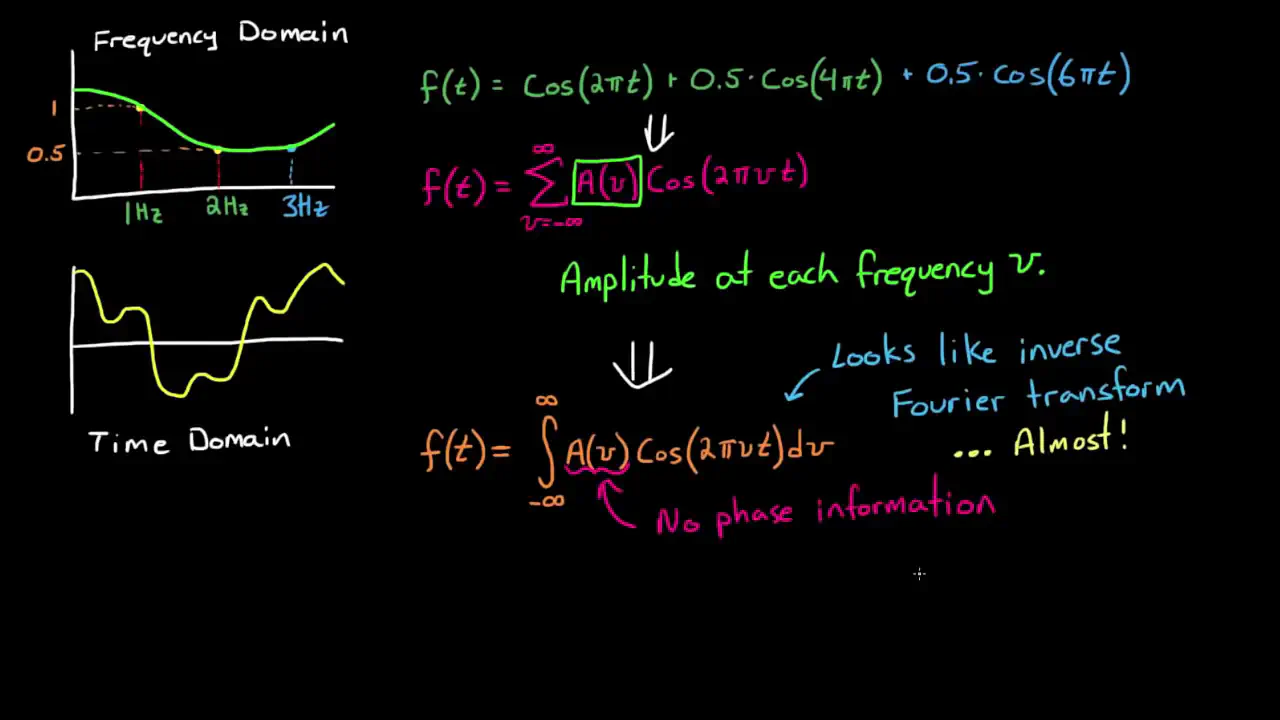 Frequency Domain
1
0.5
1Hz 2Hz 3Hz
Time Domain
f(t) = Cos(2πt) + 0.5·Cos(4πt) + 0.5·Cos(6πt)
⇓
∞
f(t) = ∑ A(ν) Cos(2πνt)
ν=-∞
Amplitude at each frequency ν.
⇓
Looks like inverse
Fourier transform
... Almost!
∞
f(t) = ∫ A(ν) Cos(2πνt)dν
-∞
No phase information